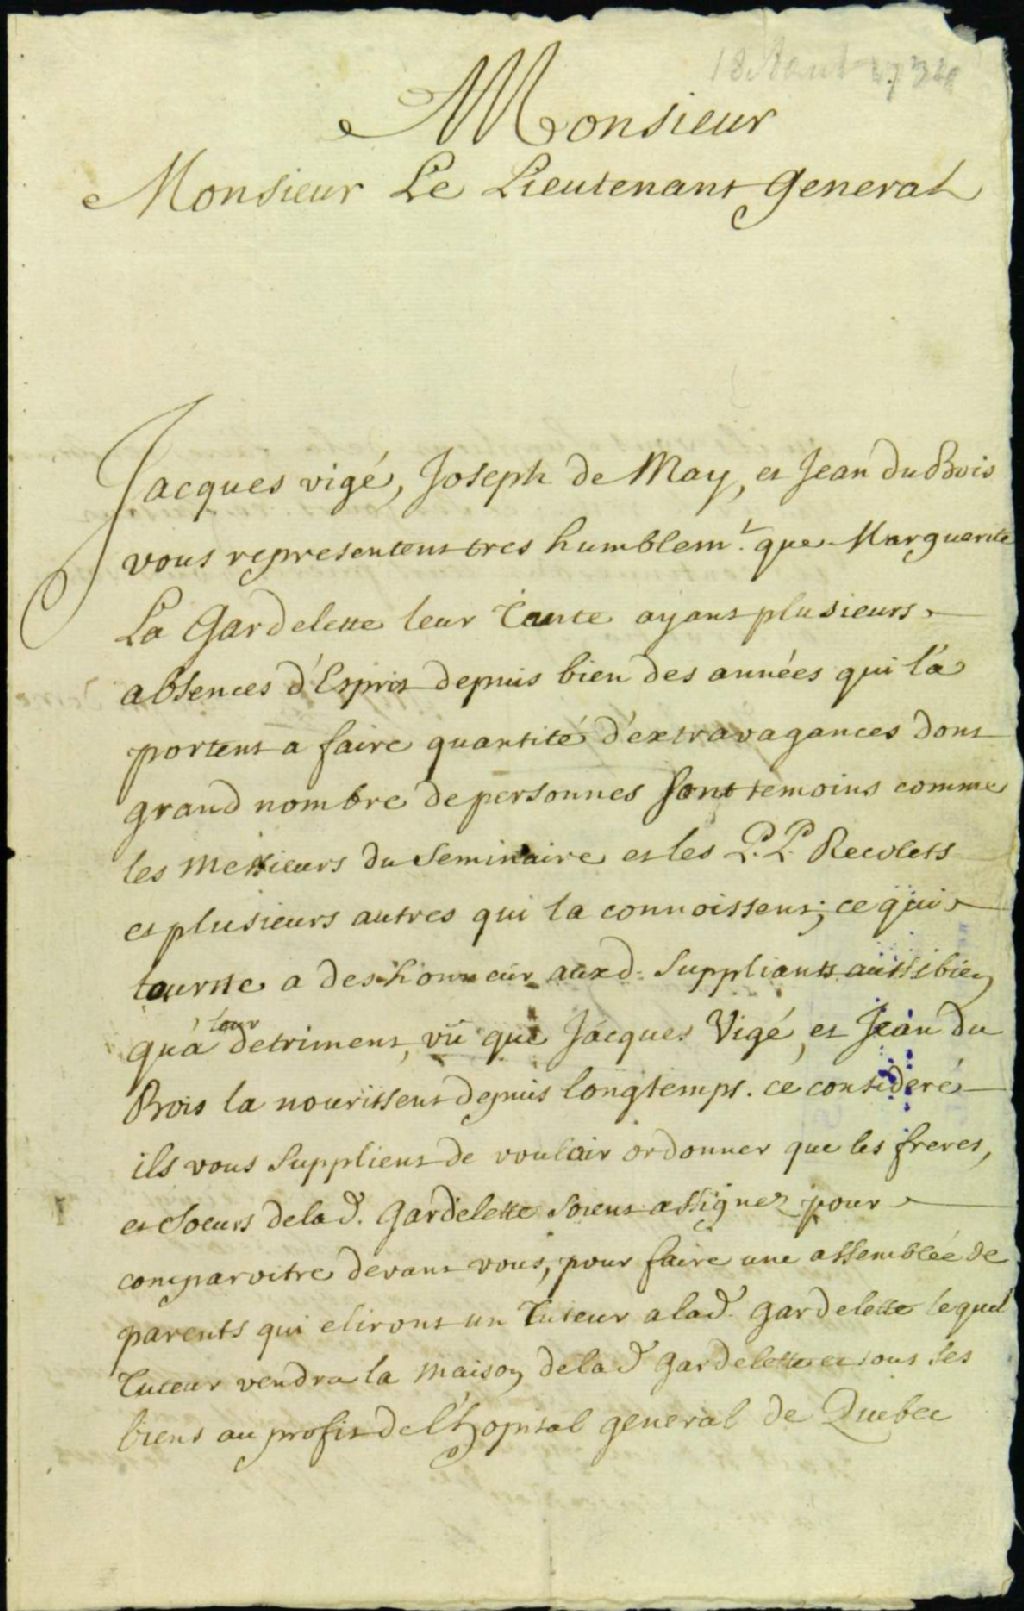 18 Aout 1734
Monsieur
Monsieur Le Lieutenant General
Jacques vigé, Joseph de May, et Jean du Bois
vous representent tres humblem.t que Marguerite
La Gardelette leur Tante ayant plusieurs
absences d'Esprit depuis bien des années qui l'a
portent a faire quantité d'extravagances dont
grand nombre de personnes sont temoins comme
les Messieurs du Seminaire et les P.P. Recolets
et plusieurs autres qui la connoissent; ce qui
tourne a deshonneur auxd. Suppliants aussi bien
qu'a leur detriment, vu que Jacques Vigé, et Jean du
Bois la nourissent depuis longtemps. ce consideré
ils vous Supplient de vouloir ordonner que les freres,
et Soeurs de lad. Gardelette Soient assignez pour
comparoitre devant vous, pour faire une assemblée de
parents qui eliront un Tuteur a lad. Gardelette lequel
Tuteur vendra la maison de lad Gardelette et tous ses
biens au profit de l'hopital general de Quebec